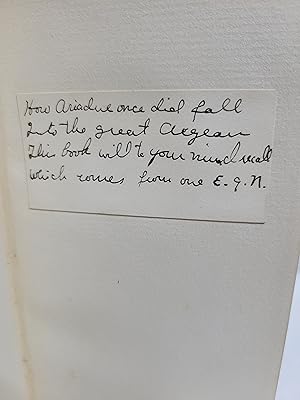 How Ariadne once did fall
Into the great Aegean
This book will to your mind recall
Which comes from one E. G. N.